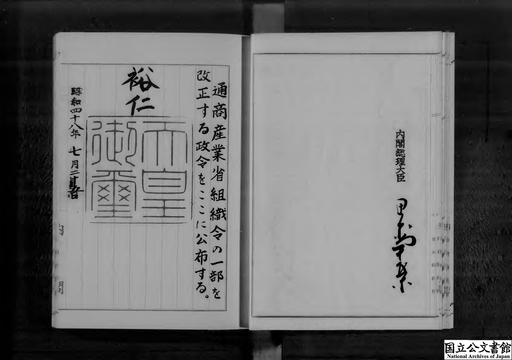 通商産業省組織令の一部を
改正する政令をここに公布する。
裕仁
天皇
御璽
昭和四十八年七月二十五日
内閣総理大臣
国立公文書館
National Archives of Japan